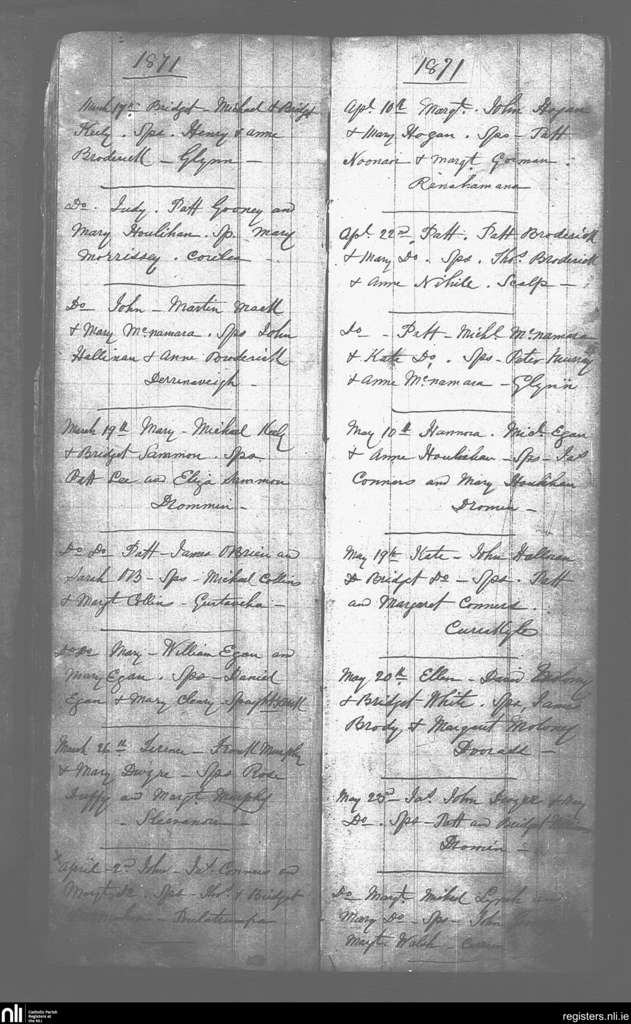 1871
March 17th Bridget - Michael & Bridget
Keely. Sps. Henry & Anne
Broderick - Glynn -
Do Judy. Patt Gooney and
Mary Houlihan. Sp. Mary
Morrissey.
Do John - Martin Mack
& Mary McNamara. Sps John
Hallinan & Anne Broderick
Derrinaveigh -
March 19th Mary - Michael Keely
& Bridget Sammon. Sps.
Patt Lee and Eliza Sammon
Drommin -
Do Do Patt - James OBrien an
Sarah OB - Sps - Michael Collins
& Margt Collins -
Do Do Mary - William Egan an
Mary Egan. Sps - Daniel
Egan & Mary Cleary -
March 26th Terence - Frank Murphy
& Mary Dwyre - Sps Rose
Duffy and Margt Murphy
April 2d John - Jas Connors an
Margt Do. Sps - Thos & Bridget
1871
Apl. 10th Margt. John Hogan
& Mary Hogan. Sps - Patt
Noonan & Margt Gorman.
Renahamana
Apl. 22d Patt. Patt Broderick
& Mary Do. Sps. Thos Broderick
& Anne Nihile. Scalp -
Do - Patt - Michl McNamara
& Kate Do. Sps - Peter Murray
& Anne McNamara - Glynn
May 10th Hannora. Michl Egan
& Anne Houlahan - Sps - Jas
Connors and Mary Houlihan
Dromin -
May 19th Kate - John Hallinan
& Bridget Do - Sps. Patt
and Margaret Connors.
May 20th Ellen - David
& Bridget White. Sps. James
Brody & Margaret Molony
Dooradd -
May 23d - Jas. John Dwyre & Mary
Do. Sps - Patt and Bridget
Dromin -
Do Margt. Michael Lynch and
Mary Do - Sps - John
Margt Walsh.
nli
Catholic Parish
Registers at
the NLI
registers.nli.ie